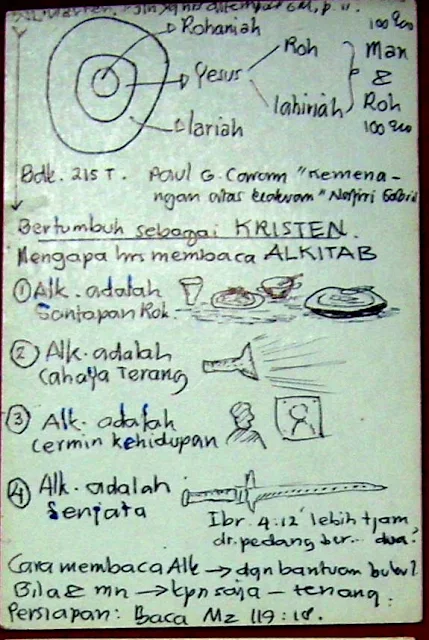 Rohaniah
Yesus
Roh
lahiriah
lariah
100%
Man
&
Roh
100%
Bdk. 215 T. Paul G. "Kemena-
ngan atas
Bertumbuh sebagai KRISTEN.
Mengapa hrs membaca ALKITAB
① Alk. adalah
Santapan Roh.
② Alk. adalah
Cahaya Terang
③ Alk. adalah
Cermin kehidupan
④ Alk. adalah
Senjata
Ibr. 4:12 lebih tjam
dr. pedang ber... dua?
Cara membaca Alk → dgn bantuan buku?
Bila & mn → kpn saja - tenang.
Persiapan: Baca Mz 119:18.